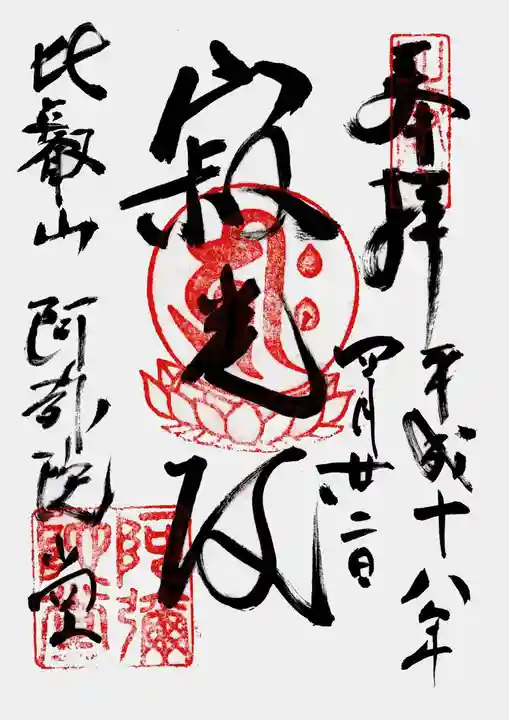 奉拝
平成十八年
四月廿二日
寂光
比叡山 阿弥陀堂
阿彌陀堂